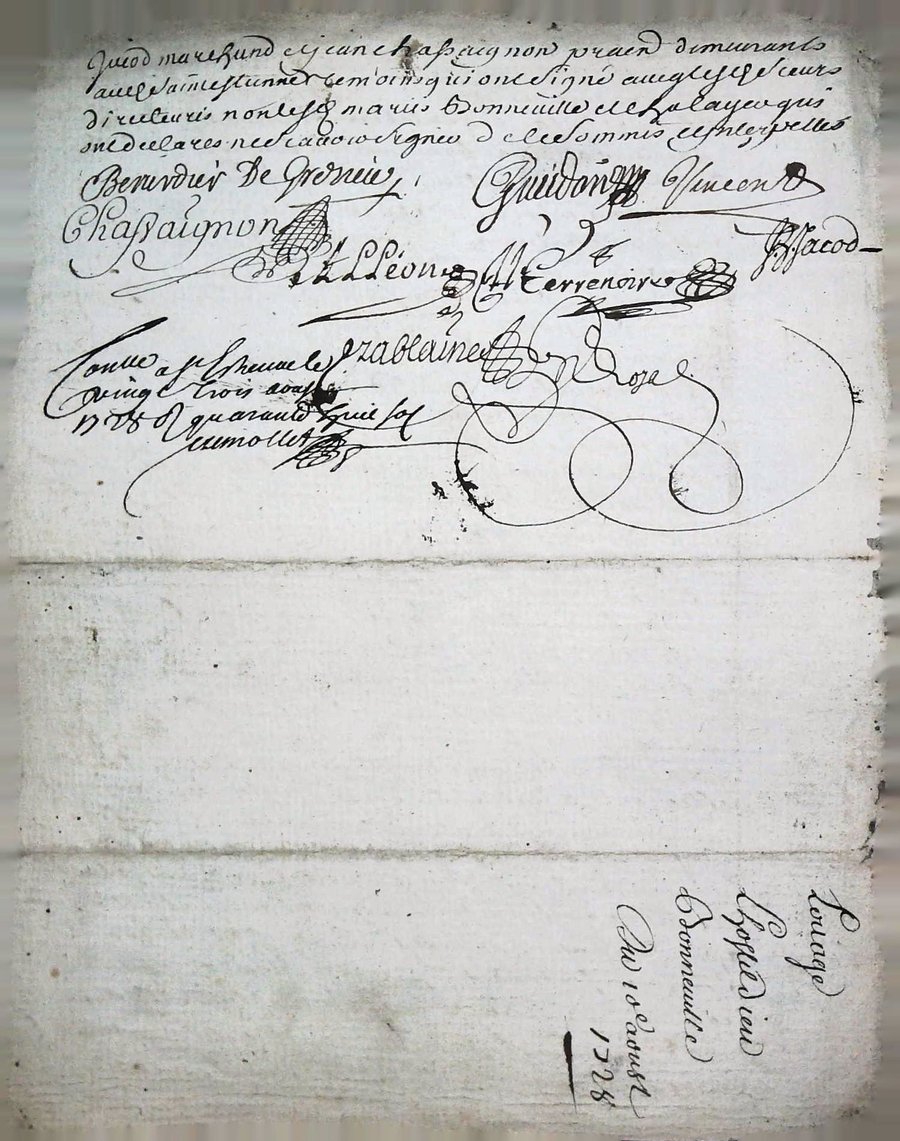 Jacod marchand et jean chassaignon praticien demeurants
audit saint estienne temoins qui ont signé avec lesd sieurs
directeurs non lesd mariés Bonneuille et chalayer qui
ont declarés ne scavoir signer de ce sommés et interpellés
Berardier De Grezieu Vincent
Chassaignon
J Jacod
Léon Terrenoire
rablaine
Conllé a st Estienne le
vingt trois aoust
1728 R quarante huit sol
Louage
Lhostel dieu
Bonneuille
Du 10e aoust
1728